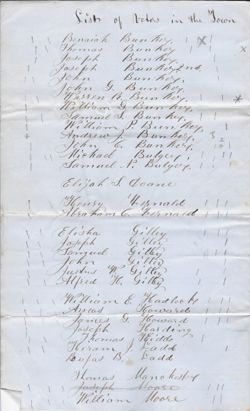 List of Votes in the Town
Benaiah Bunker
Thomas Bunker
Joseph Bunker
Joseph Bunker 2nd
John Bunker
John G. Bunker
Warren B. Bunker
William G. Bunker
Samuel S. Bunker
William P. Bunker
Andrew J. Bunker
John E. Bunker
Michael Bulger
Samuel N. Bulger
Elijah S. Coane
Henry Fernald
Abraham C. Fernald
Elisha Gilley
Joseph Gilley
Samuel Gilley
John Gilley
W. Gilley
Alfred H. Gilley
William E. Hadlock
Howard
James G. Howard
Joseph Harding
Thomas Kidd
Hiram J. Ladd
Rufus B. Ladd
Thomas Manchester
Joseph Moore
William Moore